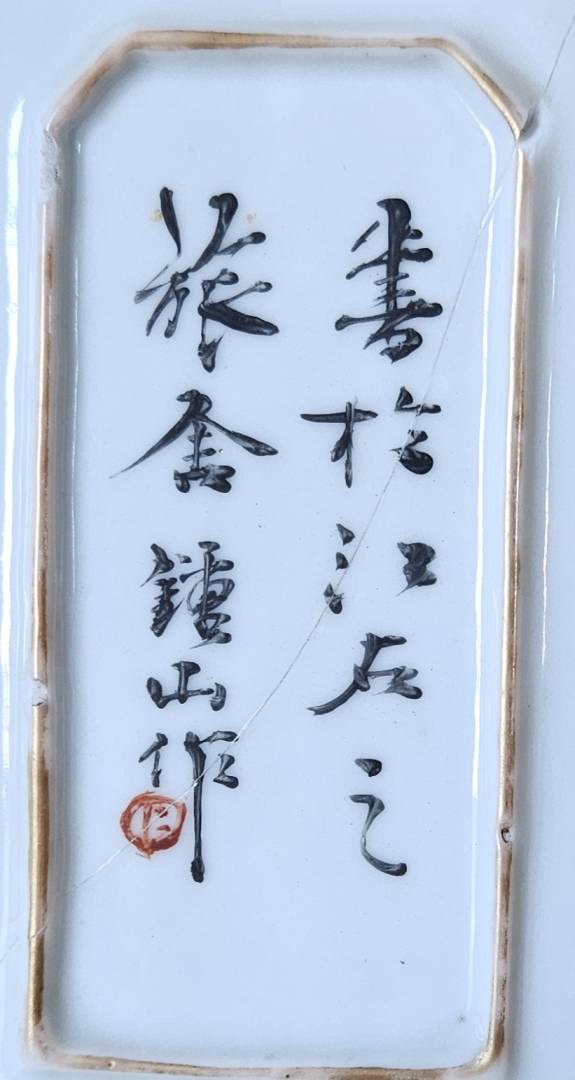 書於江右之
旅舍鍾山作